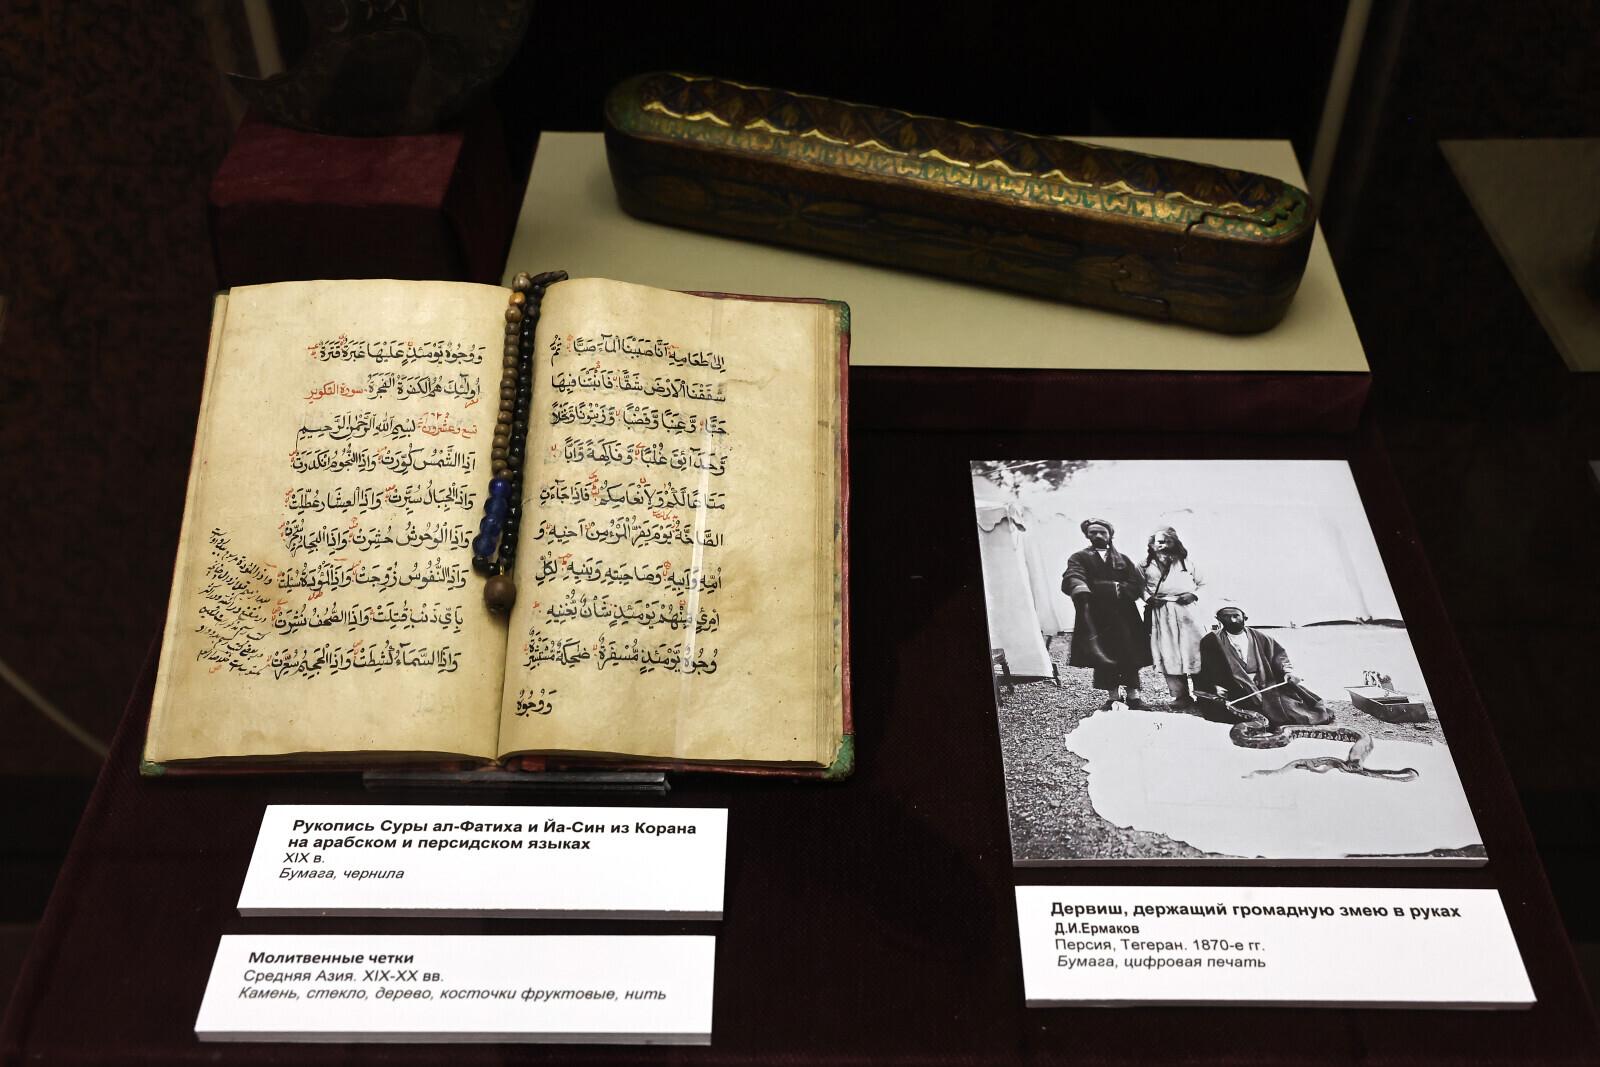 اِلٰى طَعَامِهٖ اَنَّا صَبَبْنَا الْمَآءَ صَبًّا ثُمَّ
شَقَقْنَا الْاَرْضَ شَقًّا فَاَنْبَتْنَا فِيهَا
حَبًّا وَّعِنَبًا وَّقَضْبًا وَّزَيْتُونًا وَّنَخْلًا
وَّحَدَآئِقَ غُلْبًا وَّفَاكِهَةً وَّاَبًّا
مَتَاعًا لَّكُمْ وَلِاَنْعَامِكُمْ فَاِذَا جَآءَتِ
الصَّآخَّةُ يَوْمَ يَفِرُّ الْمَرْءُ مِنْ اَخِيهِ وَ
اُمِّهٖ وَاَبِيهِ وَصَاحِبَتِهٖ وَبَنِيهِ لِكُلِّ
امْرِئٍ مِّنْهُمْ يَوْمَئِذٍ شَاْنٌ يُّغْنِيهِ
وُجُوهٌ يَّوْمَئِذٍ مُّسْفِرَةٌ ضَاحِكَةٌ مُّسْتَبْشِرَةٌ
وَوُجُوهٌ
وَوُجُوهٌ يَّوْمَئِذٍ عَلَيْهَا غَبَرَةٌ قَتَرَةٌ
اُولٰئِكَ هُمُ الْكَفَرَةُ الْفَجَرَةُ سورة التكوير
تسع وعشرون بِسْمِ اللهِ الرَّحْمٰنِ الرَّحِيمِ
اِذَا الشَّمْسُ كُوِّرَتْ وَاِذَا النُّجُومُ انْكَدَرَتْ
وَاِذَا الْجِبَالُ سُيِّرَتْ وَاِذَا الْعِشَارُ عُطِّلَتْ
وَاِذَا الْوُحُوشُ حُشِرَتْ وَاِذَا الْبِحَارُ سُجِّرَتْ
وَاِذَا النُّفُوسُ زُوِّجَتْ وَاِذَا الْمَوْءُدَةُ سُئِلَتْ
بِاَيِّ ذَنْبٍ قُتِلَتْ وَاِذَا الصُّحُفُ نُشِرَتْ
وَاِذَا السَّمَآءُ كُشِطَتْ وَاِذَا الْجَحِيمُ سُعِّرَتْ
Рукопись Суры ал-Фатиха и Йа-Син из Корана
на арабском и персидском языках
XIX в.
Бумага, чернила
Молитвенные четки
Средняя Азия. XIX-XX вв.
Камень, стекло, дерево, косточки фруктовые, нить
Дервиш, держащий громадную змею в руках
Д.И.Ермаков
Персия, Тегеран. 1870-е гг.
Бумага, цифровая печать